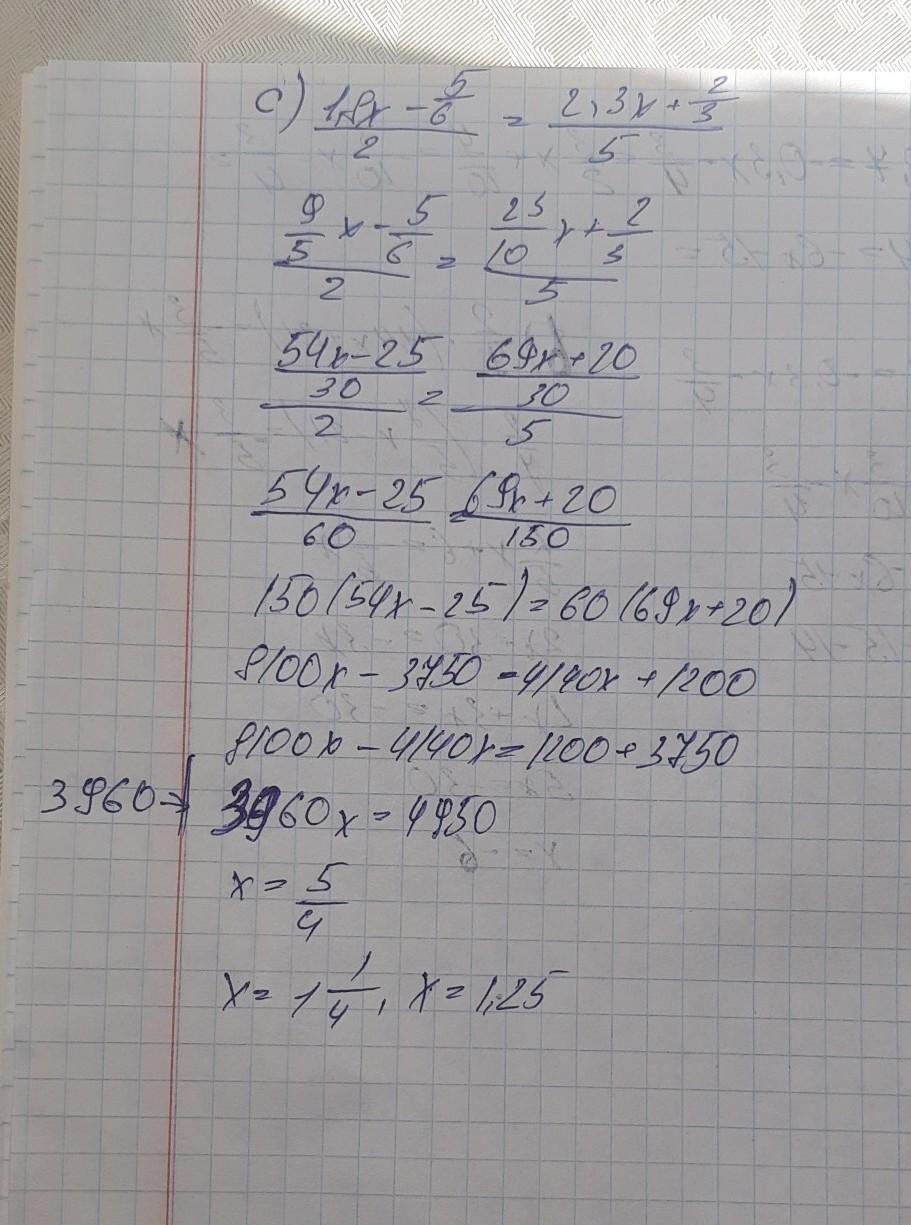 c) (1,8x - 5/6)/2 = (2,3x + 2/3)/5
(9/5 x - 5/6)/2 = (23/10 x + 2/3)/5
((54x - 25)/30)/2 = ((69x + 20)/30)/5
(54x - 25)/60 = (69x + 20)/150
150(54x - 25) = 60(69x + 20)
8100x - 3750 = 4140x + 1200
8100x - 4140x = 1200 + 3750
3960 → 3960x = 4950
x = 5/4
x = 1 1/4, x = 1,25